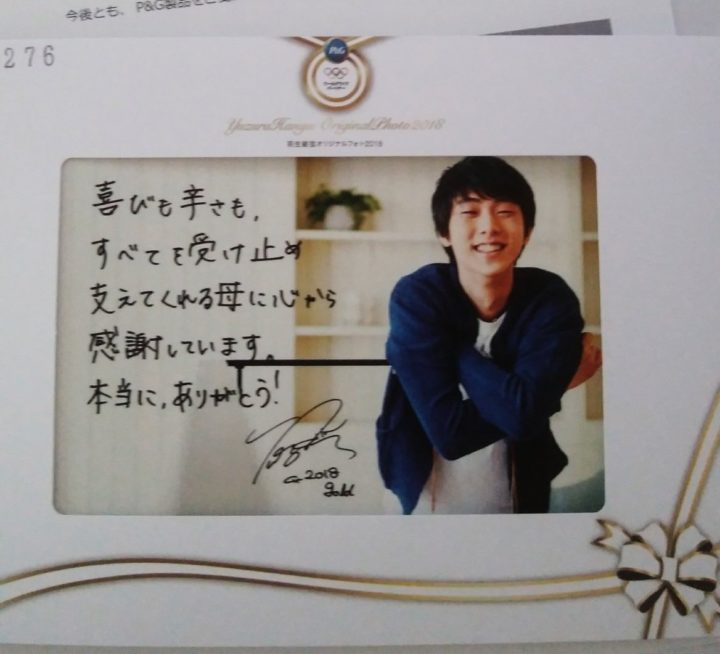 今後とも、P&G製品をご
276
P&G
ワールドワイド
パートナー
YuzuruHanyu OriginalPhoto2018
羽生結弦オリジナルフォト2018
喜びも辛さも,
すべてを受け止め
支えてくれる母に心から
感謝しています。
本当に,ありがとう!
2018
gold